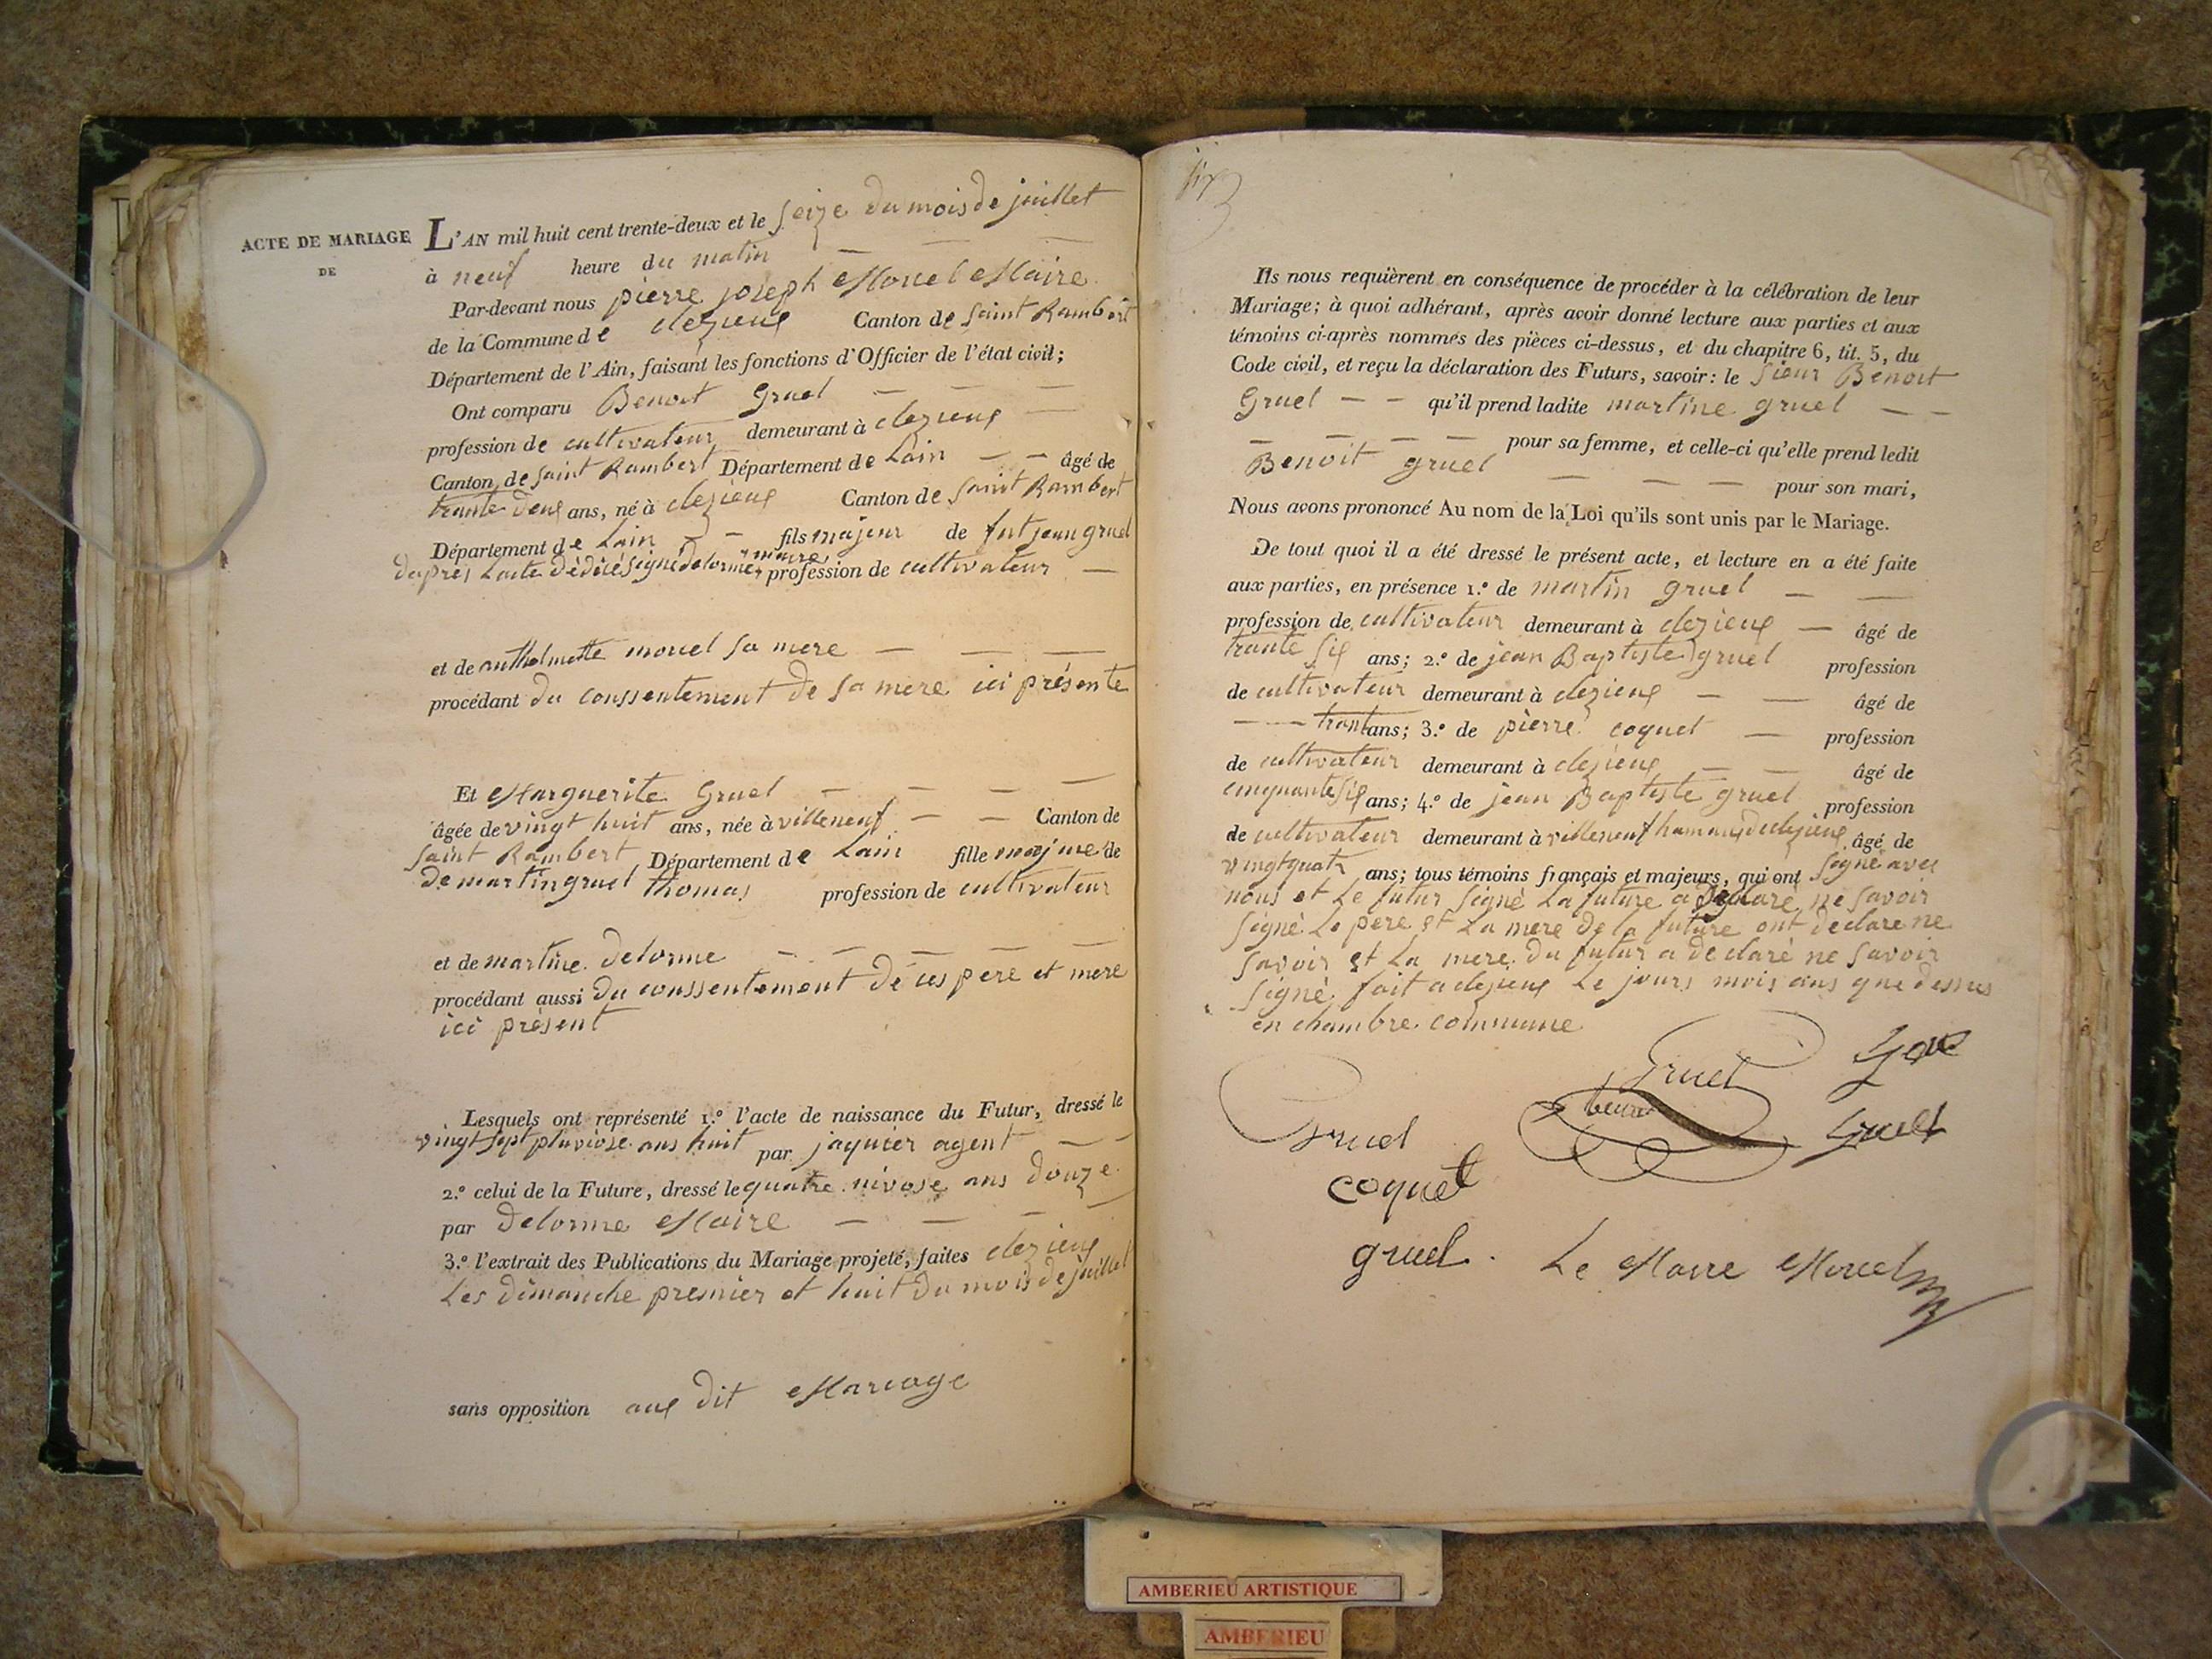 ACTE DE MARIAGE
DE
L'AN mil huit cent trente-deux et le seize du mois de juillet
à neuf heure du matin
Par-devant nous pierre joseph Morel Maire
de la Commune de clezieux Canton de saint Rambert
Département de l'Ain, faisant les fonctions d'Officier de l'état civil;
Ont comparu Benoit Gruel
profession de cultivateur demeurant à clezieux
Canton de saint Rambert Département de Lain âgé de
trante deux ans, né à clezieux Canton de saint Rambert
Département de Lain fils majeur de fut jean gruel
daprès Lacte dedécé signé delorme maire profession de cultivateur
et de anthelmette morel sa mere
procédant du conssentement de sa mere ici présente
Et Marguerite Gruel
âgée de vingt huit ans, née à villeneuf Canton de
saint Rambert Département de Lain fille majure de
de martin gruel thomas profession de cultivateur
et de martine delorme
procédant aussi du conssentement de ces pere et mere
ici présent
Lesquels ont représenté 1.º l'acte de naissance du Futur, dressé le
vingt sept pluviose ans huit par jaquier agent
2.º celui de la Future, dressé le quatre nivose ans douze
par Delorme Maire
3.º l'extrait des Publications du Mariage projeté, faites clezieux
Les dimanche premier et huit du mois de juillet
sans opposition aux dit Mariage
Ils nous requièrent en conséquence de procéder à la célébration de leur
Mariage; à quoi adhérant, après avoir donné lecture aux parties et aux
témoins ci-après nommés des pièces ci-dessus, et du chapitre 6, tit. 5, du
Code civil, et reçu la déclaration des Futurs, savoir: le sieur Benoit
Gruel qu'il prend ladite martine gruel
pour sa femme, et celle-ci qu'elle prend ledit
Benoit gruel
pour son mari,
Nous avons prononcé Au nom de la Loi qu'ils sont unis par le Mariage.
De tout quoi il a été dressé le présent acte, et lecture en a été faite
aux parties, en présence 1.º de martin gruel
profession de cultivateur demeurant à clezieux âgé de
trante six ans; 2.º de jean Baptiste gruel profession
de cultivateur demeurant à clezieux âgé de
trant ans; 3.º de pierre coquet profession
de cultivateur demeurant à clezieux âgé de
cinquante six ans; 4.º de jean Baptiste gruel profession
de cultivateur demeurant à villeneuf hamaux declezieux âgé de
vingt quatr ans; tous témoins français et majeurs, qui ont signé avec
nous et Le futur signé La future a déclaré ne savoir
signé Le pere et La mere de la future ont declare ne
savoir et La mere du futur a declaré ne savoir
signé fait a clezieux Le jours mois ans que dessus
en chambre commune
Gruel
benoi
Gruel
Gruel
coquet
gruel.
Le Maire Morel
AMBERIEU ARTISTIQUE
AMBERIEU